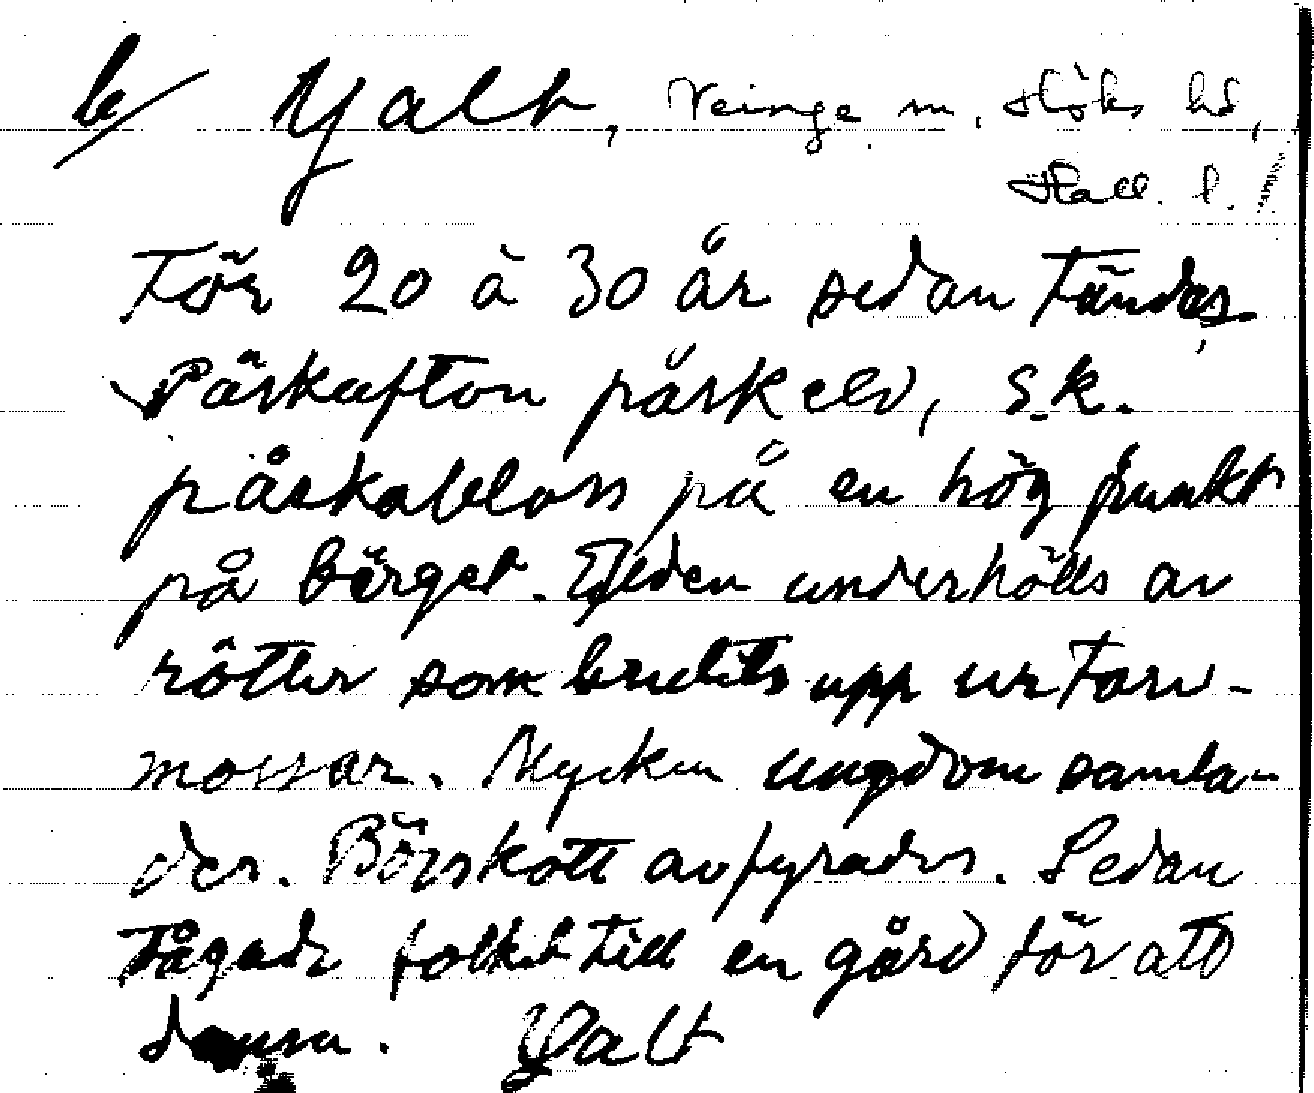 b/ Yalt, Veinge sn, Höks hd,
Hall. l.
För 20 à 30 år sedan tändes
Påskafton påskeld, s.k.
påskabloss på en hög punkt
på bärget. Elden underhölls av
rötter som brutits upp ur torv-
mossar. Mycken ungdom samla-
des. Börskott avfyrades. Sedan
tågade folket till en gård för att
dansa. Yalt